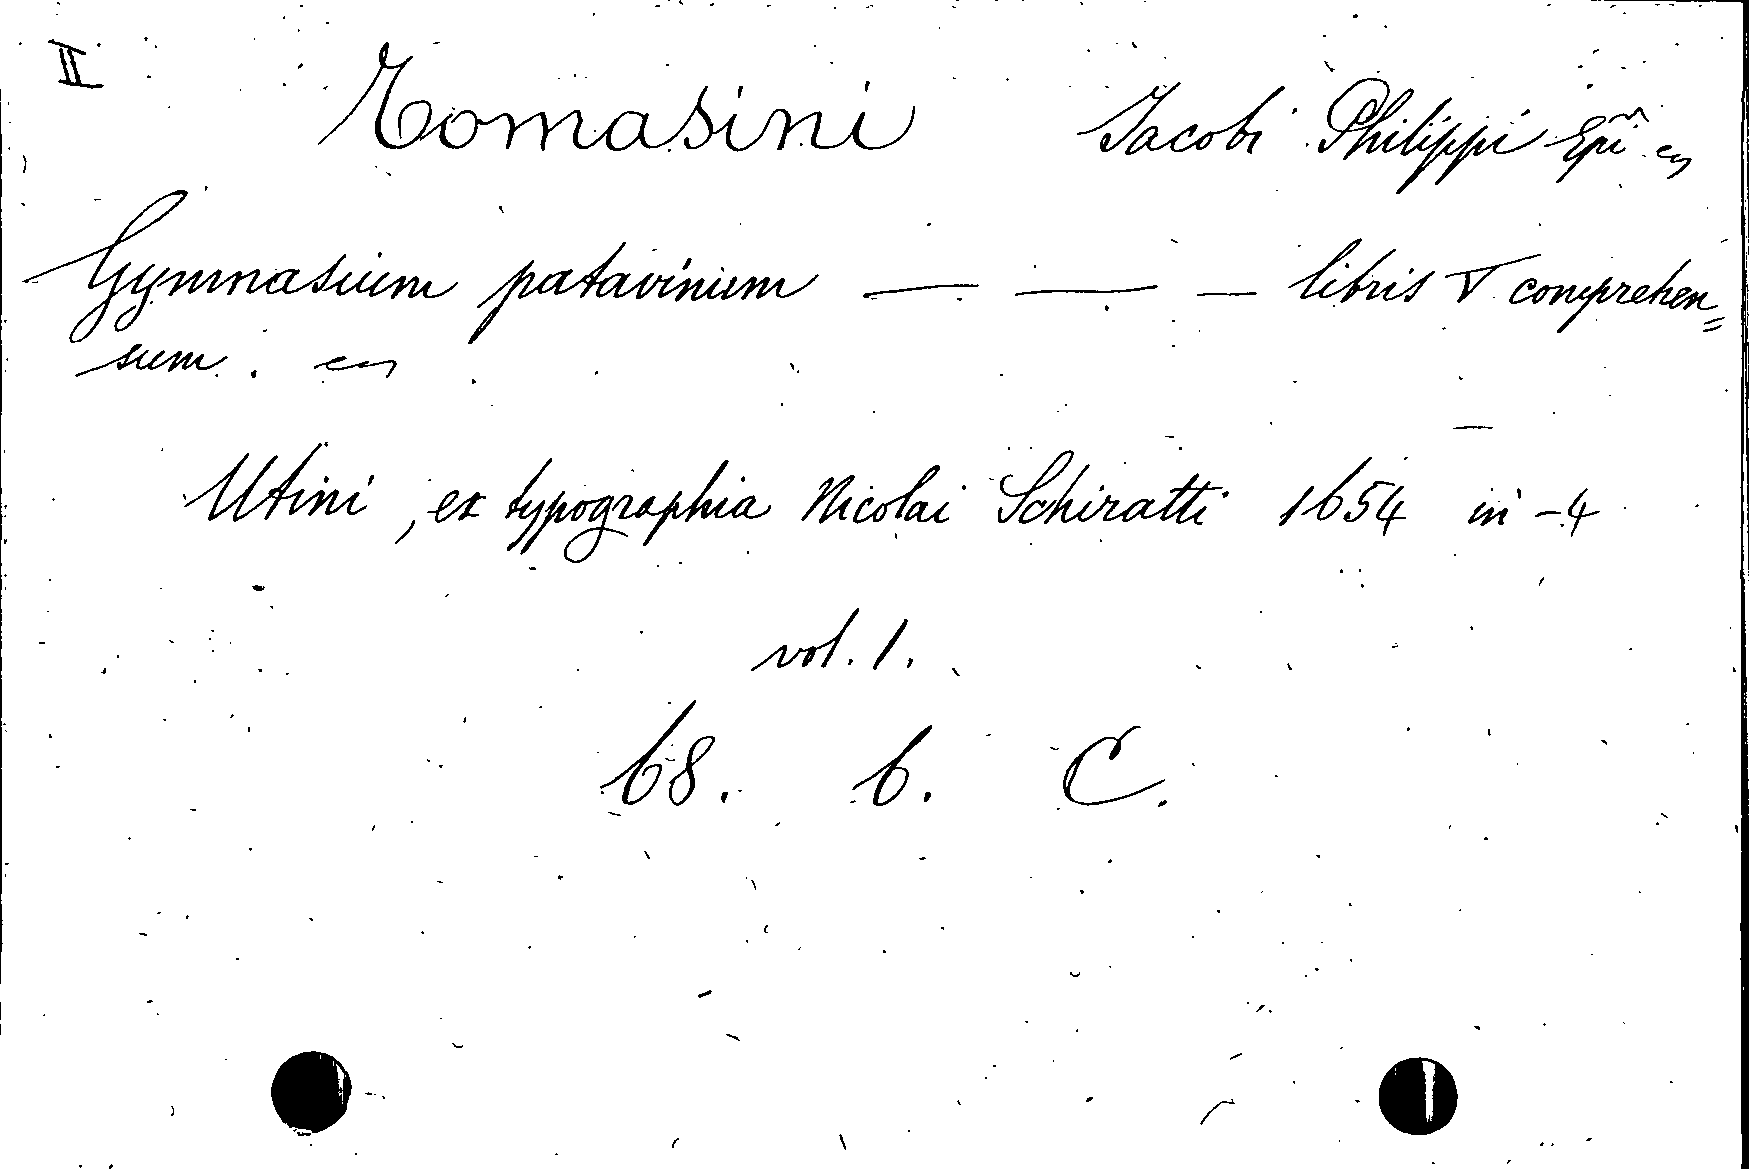 II
Tomasini Jacobi Philippi Epĩ
Gymnasium patavinum — — — libris V comprehen=
sum.
Utini, ex typographia Nicolai Schiratti 1654 in-4
vol. 1.
68. b. C.